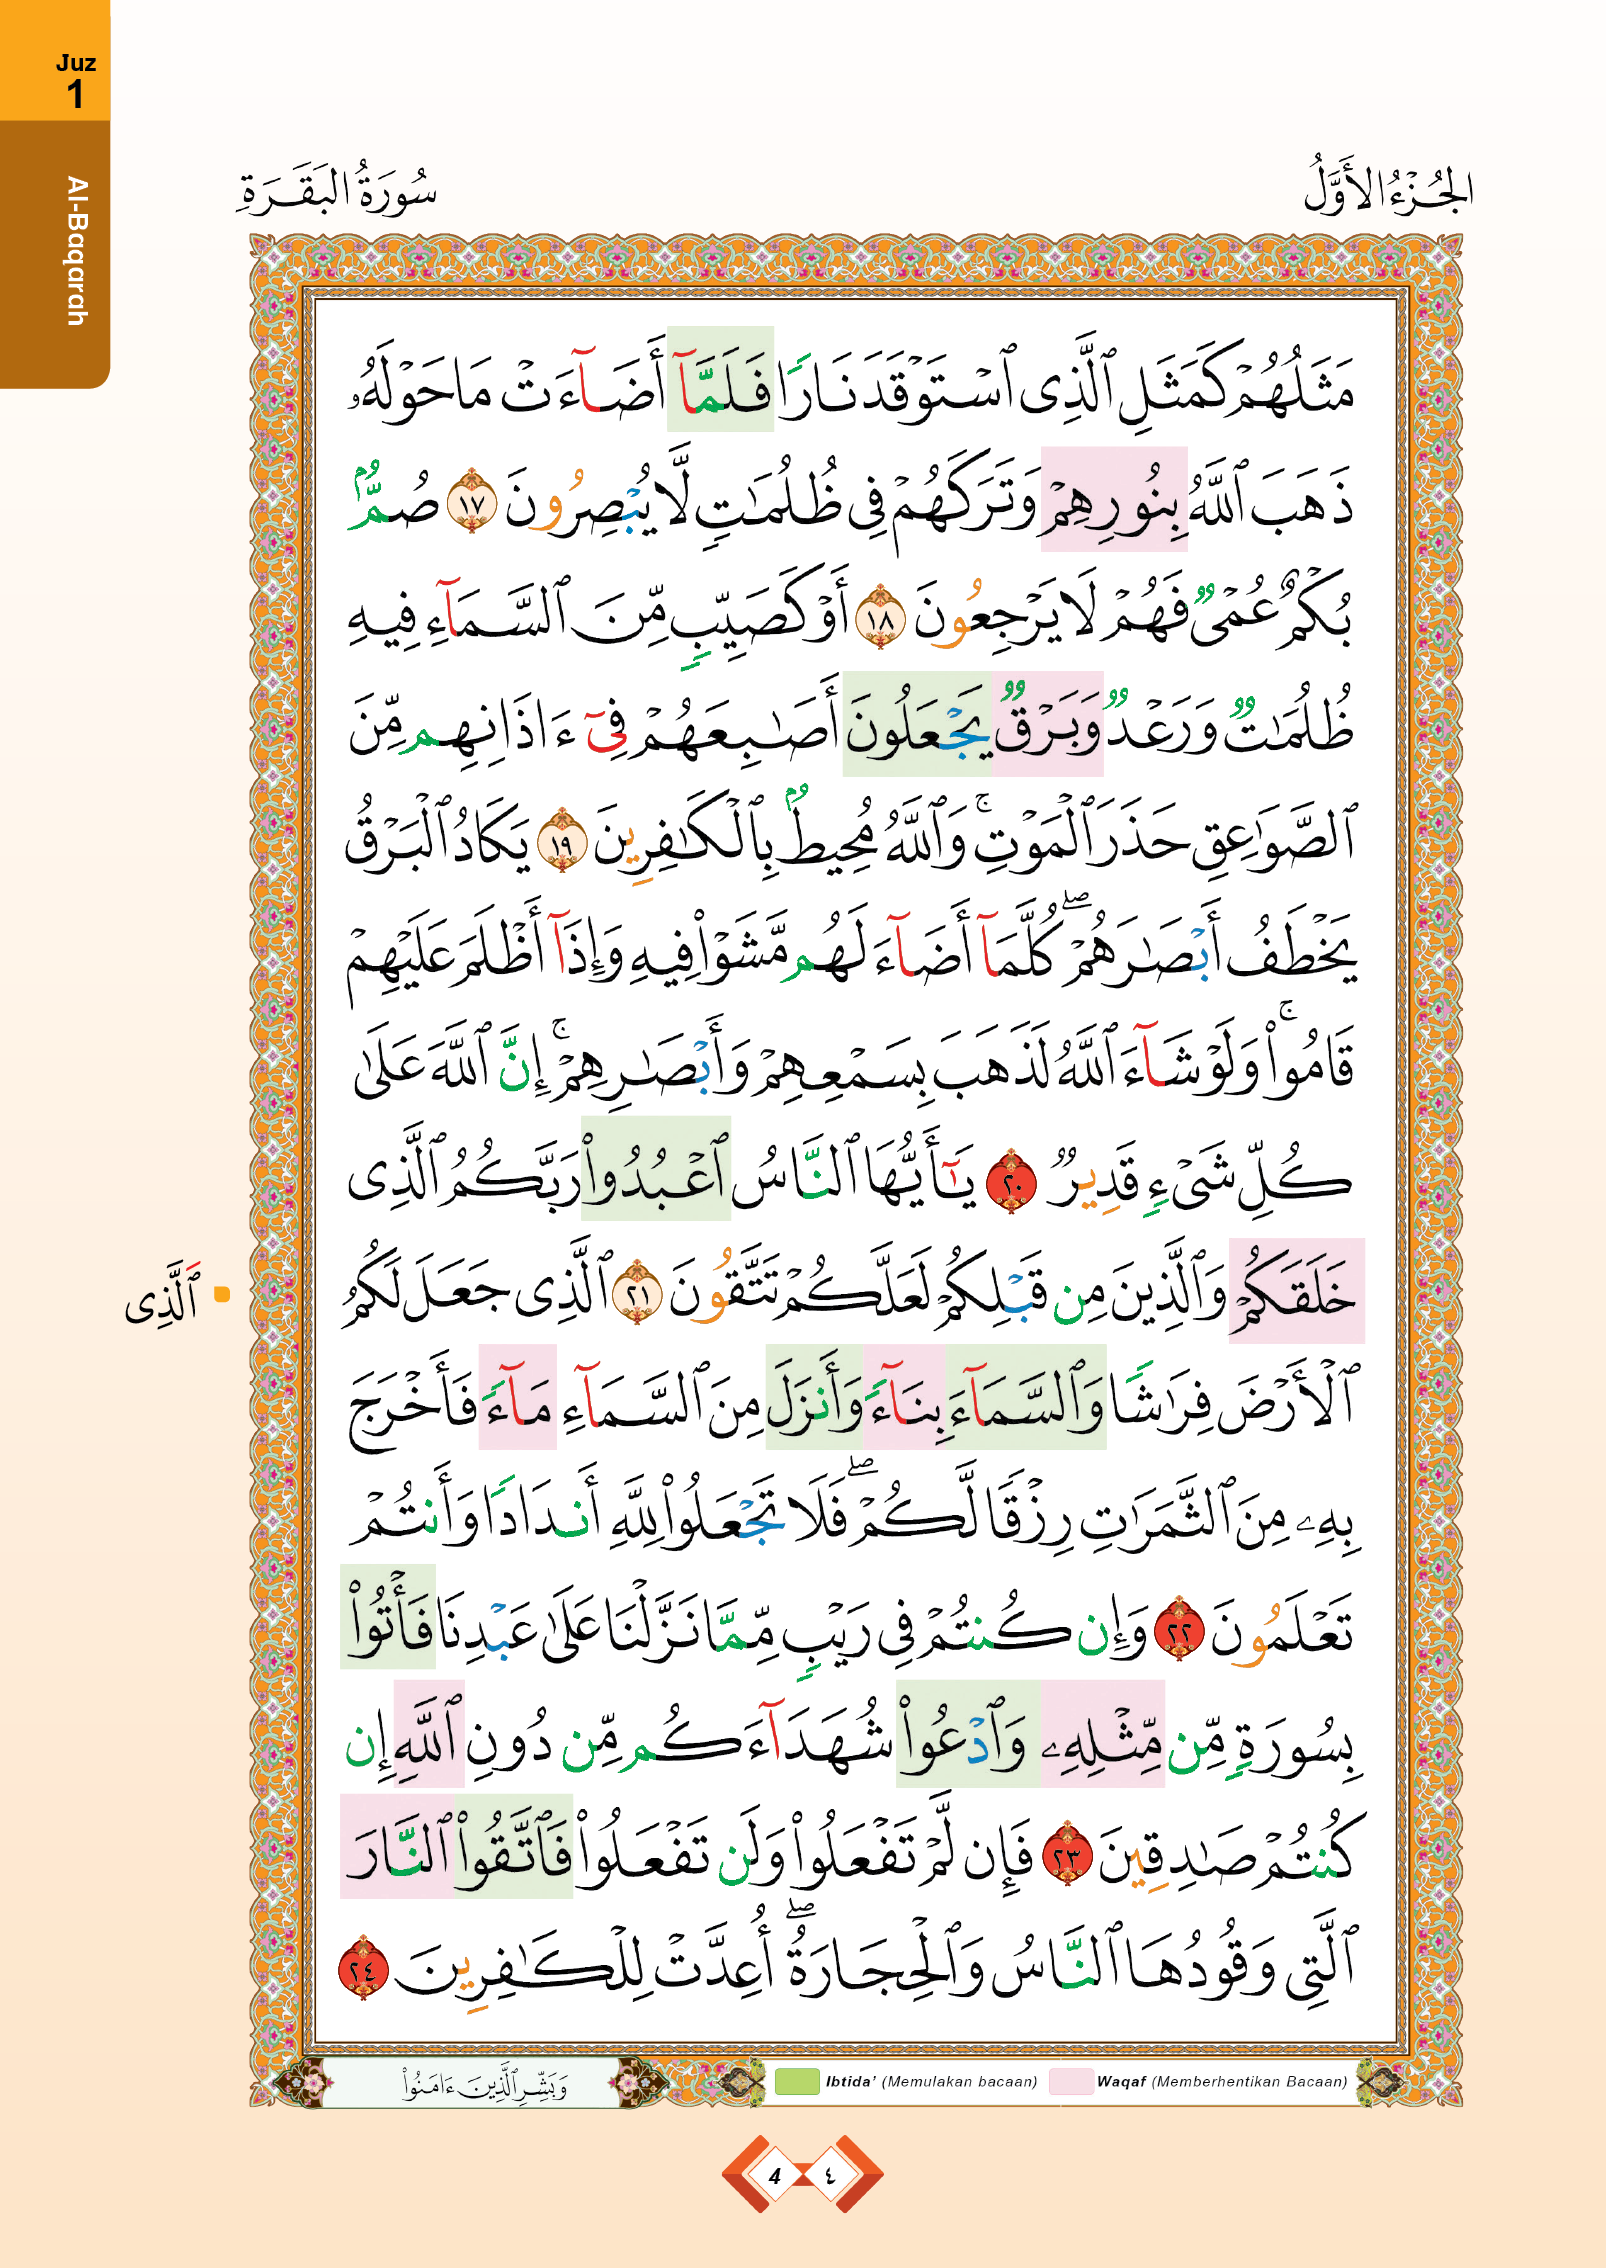 Juz
1
Al-Baqarah
الجُزْءُ الأَوَّلُ
سُورَةُ البَقَرَةِ
مَثَلُهُمْ كَمَثَلِ ٱلَّذِى ٱسْتَوْقَدَ نَارًا فَلَمَّآ أَضَآءَتْ مَا حَوْلَهُۥ
ذَهَبَ ٱللَّهُ بِنُورِهِمْ وَتَرَكَهُمْ فِى ظُلُمَٰتٍ لَّا يُبْصِرُونَ ١٧ صُمٌّۢ
بُكْمٌ عُمْىٌ فَهُمْ لَا يَرْجِعُونَ ١٨ أَوْ كَصَيِّبٍ مِّنَ ٱلسَّمَآءِ فِيهِ
ظُلُمَٰتٌ وَرَعْدٌ وَبَرْقٌ يَجْعَلُونَ أَصَٰبِعَهُمْ فِىٓ ءَاذَانِهِم مِّنَ
ٱلصَّوَٰعِقِ حَذَرَ ٱلْمَوْتِ ۚ وَٱللَّهُ مُحِيطٌۢ بِٱلْكَٰفِرِينَ ١٩ يَكَادُ ٱلْبَرْقُ
يَخْطَفُ أَبْصَٰرَهُمْ ۖ كُلَّمَآ أَضَآءَ لَهُم مَّشَوْا۟ فِيهِ وَإِذَآ أَظْلَمَ عَلَيْهِمْ
قَامُوا۟ ۚ وَلَوْ شَآءَ ٱللَّهُ لَذَهَبَ بِسَمْعِهِمْ وَأَبْصَٰرِهِمْ ۚ إِنَّ ٱللَّهَ عَلَىٰ
كُلِّ شَىْءٍ قَدِيرٌ ٢٠ يَٰٓأَيُّهَا ٱلنَّاسُ ٱعْبُدُوا۟ رَبَّكُمُ ٱلَّذِى
خَلَقَكُمْ وَٱلَّذِينَ مِن قَبْلِكُمْ لَعَلَّكُمْ تَتَّقُونَ ٢١ ٱلَّذِى جَعَلَ لَكُمُ
ٱلَّذِى
ٱلْأَرْضَ فِرَٰشًا وَٱلسَّمَآءَ بِنَآءً وَأَنزَلَ مِنَ ٱلسَّمَآءِ مَآءً فَأَخْرَجَ
بِهِۦ مِنَ ٱلثَّمَرَٰتِ رِزْقًا لَّكُمْ ۖ فَلَا تَجْعَلُوا۟ لِلَّهِ أَندَادًا وَأَنتُمْ
تَعْلَمُونَ ٢٢ وَإِن كُنتُمْ فِى رَيْبٍ مِّمَّا نَزَّلْنَا عَلَىٰ عَبْدِنَا فَأْتُوا۟
بِسُورَةٍ مِّن مِّثْلِهِۦ وَٱدْعُوا۟ شُهَدَآءَكُم مِّن دُونِ ٱللَّهِ إِن
كُنتُمْ صَٰدِقِينَ ٢٣ فَإِن لَّمْ تَفْعَلُوا۟ وَلَن تَفْعَلُوا۟ فَٱتَّقُوا۟ ٱلنَّارَ
ٱلَّتِى وَقُودُهَا ٱلنَّاسُ وَٱلْحِجَارَةُ ۖ أُعِدَّتْ لِلْكَٰفِرِينَ ٢٤
وَبَشِّرِ ٱلَّذِينَ ءَامَنُوا۟
Ibtida' (Memulakan bacaan)
Waqaf (Memberhentikan Bacaan)
4 ٤